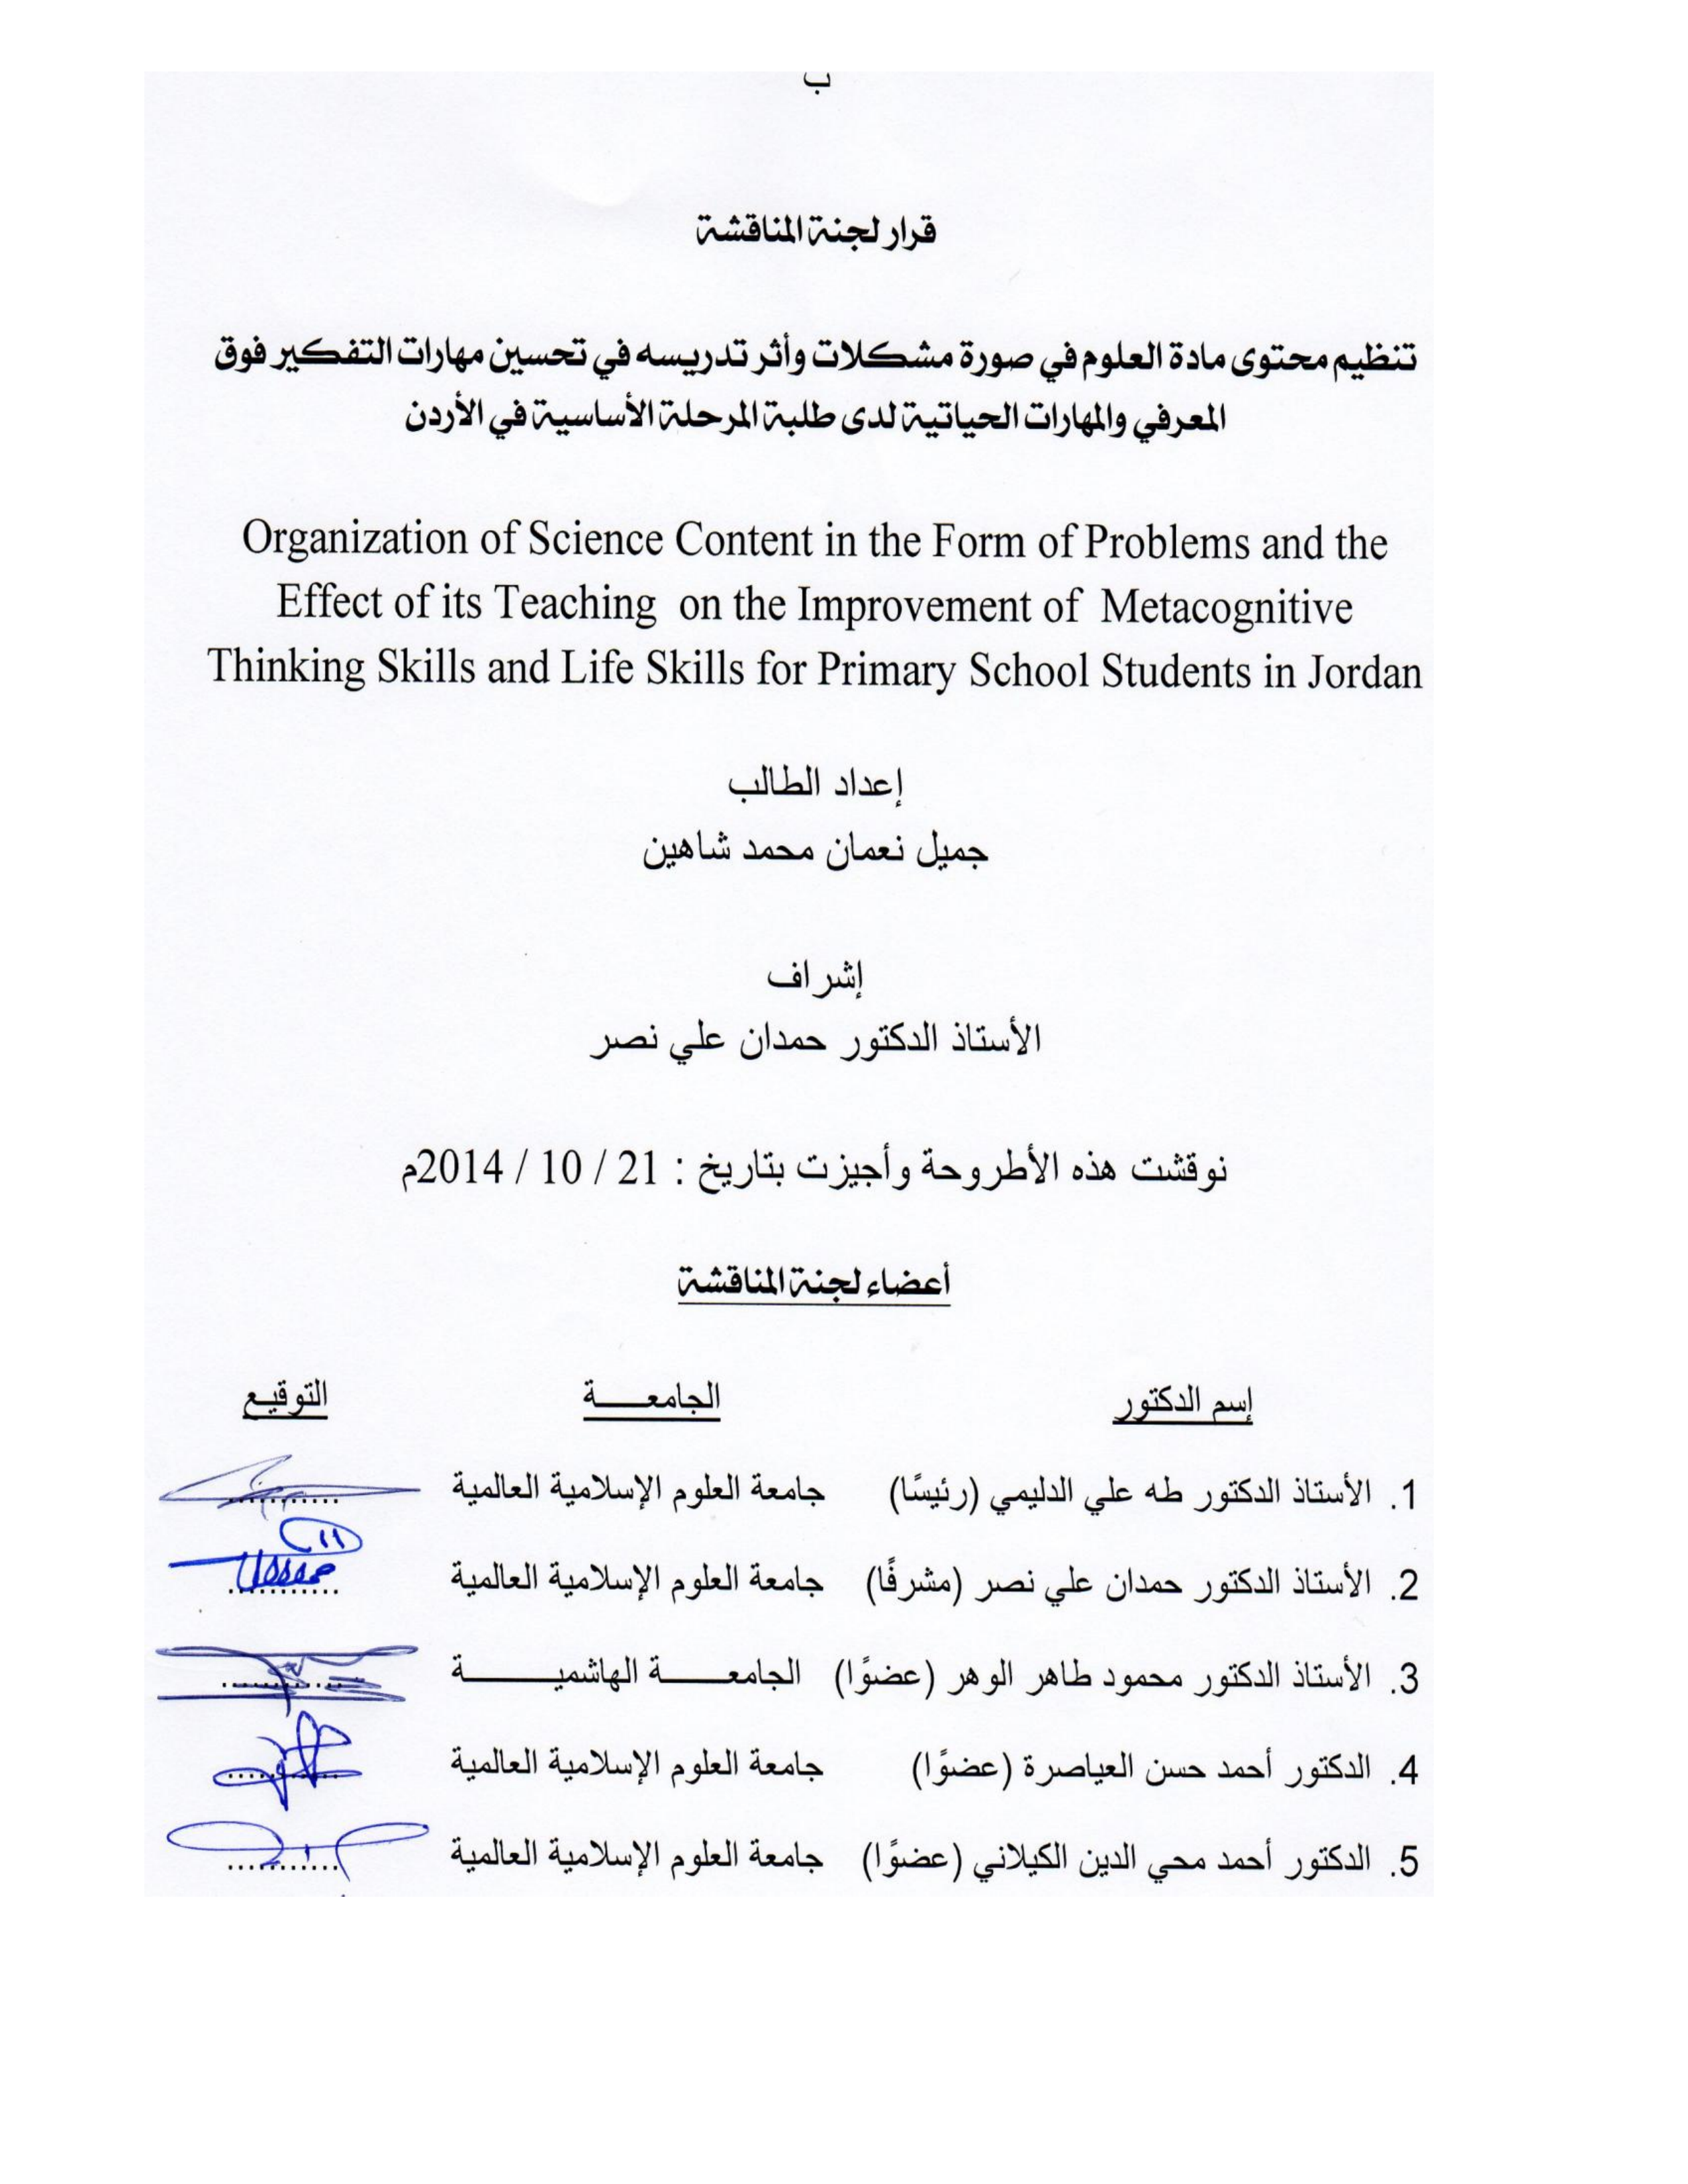 ب
قرار لجنة المناقشة
تنظيم محتوى مادة العلوم في صورة مشكلات وأثر تدريسه في تحسين مهارات التفكير فوق
المعرفي والمهارات الحياتية لدى طلبة المرحلة الأساسية في الأردن
Organization of Science Content in the Form of Problems and the
Effect of its Teaching on the Improvement of Metacognitive
Thinking Skills and Life Skills for Primary School Students in Jordan
إعداد الطالب
جميل نعمان محمد شاهين
إشراف
الأستاذ الدكتور حمدان علي نصر
نوقشت هذه الأطروحة وأجيزت بتاريخ : 21 / 10 / 2014م
أعضاء لجنة المناقشة
إسم الدكتور الجامعـــة التوقيع
1. الأستاذ الدكتور طه علي الدليمي (رئيسًا) جامعة العلوم الإسلامية العالمية ...........
2. الأستاذ الدكتور حمدان علي نصر (مشرفًا) جامعة العلوم الإسلامية العالمية ...........
3. الأستاذ الدكتور محمود طاهر الوهر (عضوًا) الجامعـــــة الهاشميـــــــة ...........
4. الدكتور أحمد حسن العياصرة (عضوًا) جامعة العلوم الإسلامية العالمية ...........
5. الدكتور أحمد محي الدين الكيلاني (عضوًا) جامعة العلوم الإسلامية العالمية ...........